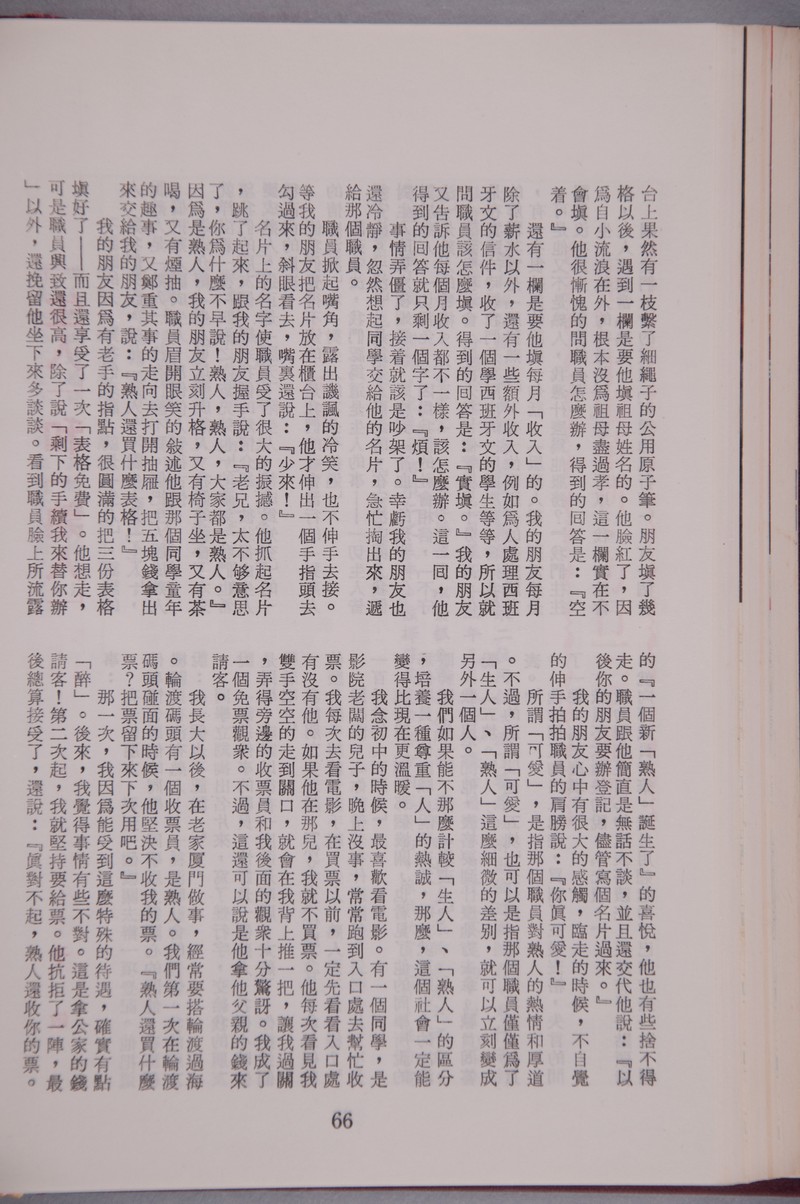 台上果然有一枝繫了細繩子的公用原子筆。朋友塡了幾
格以後，遇到一欄是要他塡祖母姓名的。他臉紅了，因
爲自小流浪在外，根本沒爲祖母盡過孝，這一欄實在不
會塡。他很慚愧的問職員怎麼辦，得到的回答是：『空
着。』
還有一欄是要他塡每月「收入」的。我的朋友每月
除了薪水以外，還有一些額外收入，例如爲人處理西班
牙文的信件，收了一個學西班牙文的學生等等，所以就
問職員該怎麼塡。得到的回答是：『實塡。』我的朋友
又告訴他每個月收入都不一樣，該怎麼辦。這一回，他
得到的回答就只剩一個字了：『煩！』
事情弄僵了，接着就該是吵架了。幸虧我的朋友也
還冷靜，忽然想起同學交給他的名片，急忙掏出來，遞
給那個職員。
職員掀起嘴角，露出譏諷的冷笑，也不伸手去接。
等我的朋友把名片放在櫃台上，他才伸出一個手指頭去
勾過來，斜眼看去，嘴裏還說：『少來！』
名片上的名字使職員受了很大的振撼。他抓起名片
，跳了起來，跟我的朋友握手說：『老兄，太不够意思
了，你爲什麼不早說！熟人，熟人，大家都是熟人。』
因爲是熟人，我的朋友立刻升格，又有椅子坐，又有茶
喝，又有煙抽。職員眉開眼笑的敍述他跟那個同學童年
的趣事，又鄭重其事的走向去打開抽屜，把五塊錢拿出
來交給我的朋友，說：『熟人還買什麼表格！』
我的朋友因爲有老手的指點，很圓滿的把三份表格
塡好了——而且還享受了一次「表格免費」。他想走，
可是職員興致還很高，除了說「剩下的手續我來替你辦
」以外，還挽留他坐下來多談談。看到職員臉上所流露
的『一個新「熟人」誕生了』的喜悅，他也有些捨不得
走。職員跟他簡直是無話不談，並且還交代他說：『以
後你的朋友要辦登記，儘管寫個名片過來。』
我的朋友心中有很大的感觸，臨走的時候，不自覺
的伸手拍拍職員的肩膀說：『你眞可愛！』
所謂「可愛」，是指那個職員對熟人的熱情和厚道
。不過，所謂「可愛」，也可以是指那個職員僅僅爲了
「生人」、「熟人」這麼細微的差别，就可以立刻變成
另外一個人。
我們如果能不那麼計較「生人」、「熟人」的區分
，培養一種尊重「人」的熱誠，那麼，這個社會一定能
變得比現在更溫暖。
我念初中的時候，最喜歡看電影。有一個同學，是
影院老闆的兒子，晚上沒事，常常跑到入口處去幫忙收
票。我每次去看電影，在買票以前，一定先看看入口處
有沒有他。如果他在那兒，我就不買票。他每次看見我
雙手空空的走到關口，就會在我背上推一把，讓我過關
，弄得旁邊的收票員和我後面的觀衆十分驚訝。我成了
一個免票觀衆。不過，這還可以說是他拿他父親的錢來
請客。
我長大以後，在老家厦門做事，經常要搭輪渡過海
。輪渡碼頭有一個收票員，是熟人。我們第一次在輪渡
碼頭碰面的時候，他堅決不收我的票。『熟人還買什麼
票？把票留下來下次用吧。』
那一次，我因爲能受到這麼特殊的待遇，確實有點
「醉」。後來，我覺得事情有些不對。這是拿公家的錢
請客！第二次起，我就堅持要給票。他抗拒了一陣，最
後總算接受了，還說：『眞對不起，熟人還收你的票。
66